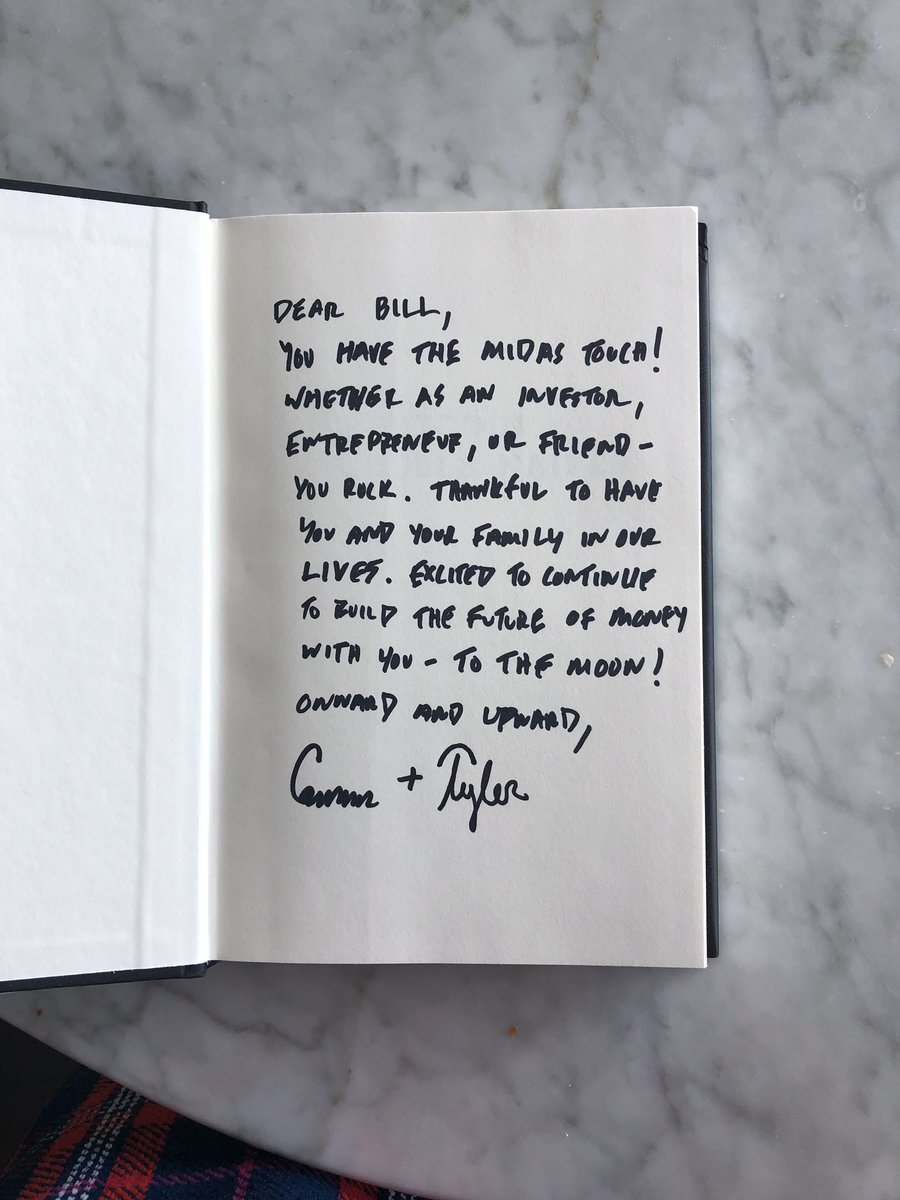 DEAR BILL,
YOU HAVE THE MIDAS TOUCH!
WHETHER AS AN INVESTOR,
ENTREPRENEUR, OR FRIEND-
YOU ROCK. THANKFUL TO HAVE
YOU AND YOUR FAMILY IN OUR
LIVES. EXCITED TO CONTINUE
TO BUILD THE FUTURE OF MONEY
WITH YOU - TO THE MOON!
ONWARD AND UPWARD,
Cameron + Tyler